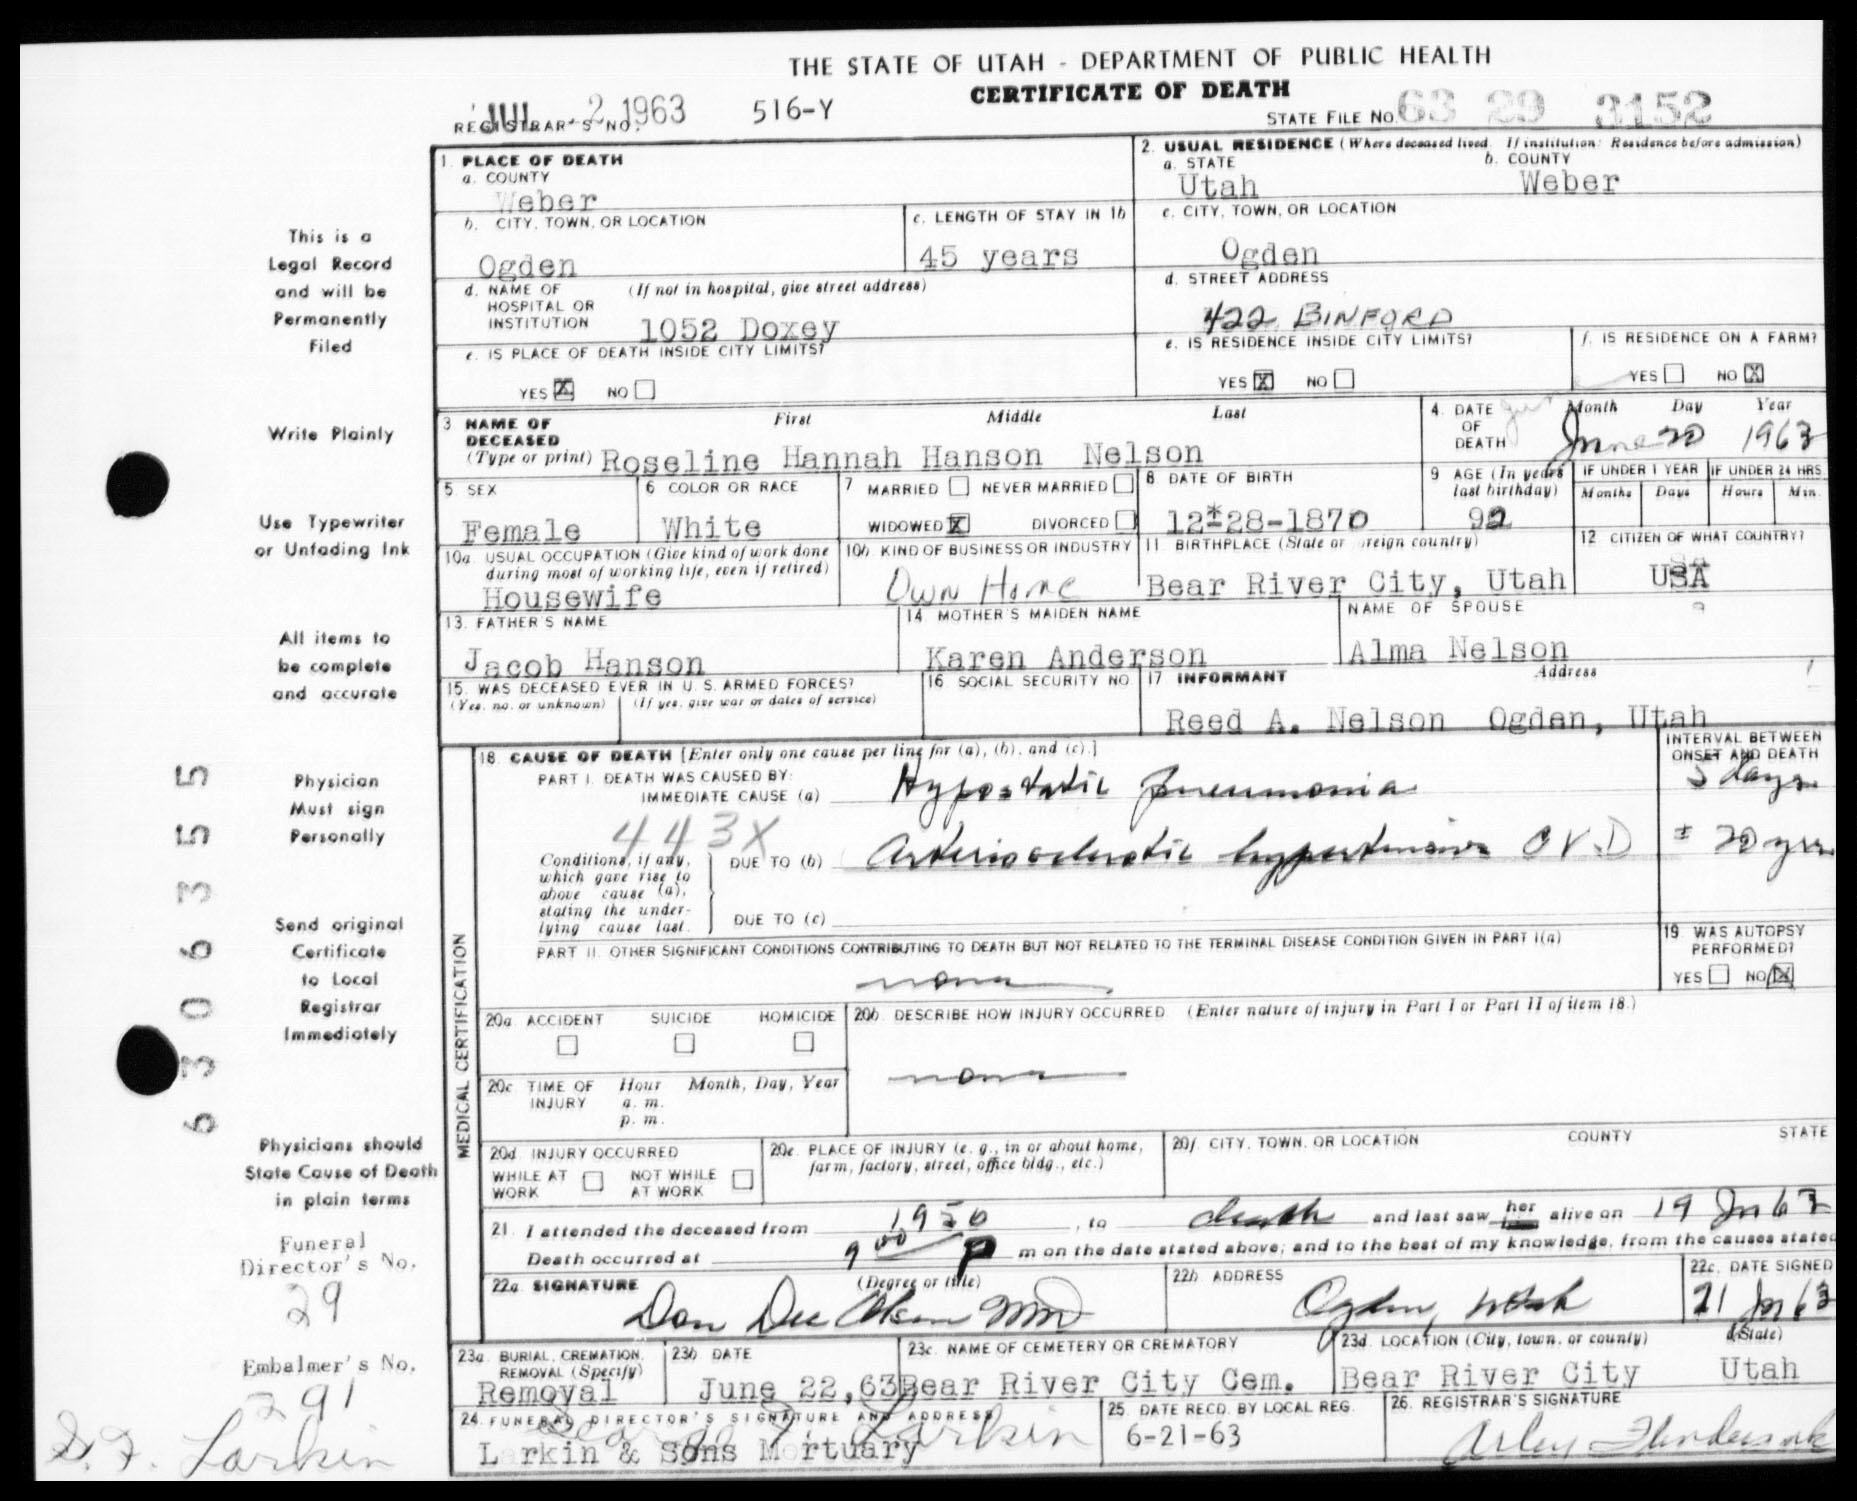 THE STATE OF UTAH - DEPARTMENT OF PUBLIC HEALTH
CERTIFICATE OF DEATH
REGISTRAR'S NO. JUL 2 1963 516-Y
STATE FILE NO. 63 29 3152
1. PLACE OF DEATH
a. COUNTY
Weber
2. USUAL RESIDENCE (Where deceased lived. If institution: Residence before admission)
a. STATE b. COUNTY
Utah Weber
b. CITY, TOWN, OR LOCATION
Ogden
c. LENGTH OF STAY IN 1b
45 years
c. CITY, TOWN, OR LOCATION
Ogden
d. NAME OF HOSPITAL OR INSTITUTION (If not in hospital, give street address)
1052 Doxey
d. STREET ADDRESS
422 BINFORD
e. IS PLACE OF DEATH INSIDE CITY LIMITS?
YES X NO
e. IS RESIDENCE INSIDE CITY LIMITS?
YES X NO
f. IS RESIDENCE ON A FARM?
YES NO X
3 NAME OF DECEASED (Type or print) First Middle Last
Roseline Hannah Hanson Nelson
4. DATE OF DEATH Month Day Year
June 20 1963
5 SEX
Female
6 COLOR OR RACE
White
7 MARRIED NEVER MARRIED
WIDOWED X DIVORCED
8 DATE OF BIRTH
12-28-1870
9 AGE (In years last birthday)
92
IF UNDER 1 YEAR IF UNDER 24 HRS.
Months Days Hours Min.
10a. USUAL OCCUPATION (Give kind of work done during most of working life, even if retired)
Housewife
10b. KIND OF BUSINESS OR INDUSTRY
Own Home
11 BIRTHPLACE (State or foreign country)
Bear River City, Utah
12 CITIZEN OF WHAT COUNTRY?
USA
13. FATHER'S NAME
Jacob Hanson
14 MOTHER'S MAIDEN NAME
Karen Anderson
NAME OF SPOUSE
Alma Nelson
15. WAS DECEASED EVER IN U. S. ARMED FORCES?
(Yes, no, or unknown) (If yes, give war or dates of service)
16 SOCIAL SECURITY NO.
17 INFORMANT Address
Reed A. Nelson Ogden, Utah
18. CAUSE OF DEATH [Enter only one cause per line for (a), (b), and (c).]
INTERVAL BETWEEN ONSET AND DEATH
PART I. DEATH WAS CAUSED BY:
IMMEDIATE CAUSE (a) Hypostatic pneumonia 5 days
443X
Conditions, if any, which gave rise to above cause (a), stating the underlying cause last.
DUE TO (b) Arteriosclerotic hypertensive C.V.D ± 20 yrs
DUE TO (c)
PART II. OTHER SIGNIFICANT CONDITIONS CONTRIBUTING TO DEATH BUT NOT RELATED TO THE TERMINAL DISEASE CONDITION GIVEN IN PART I(a)
none
19. WAS AUTOPSY PERFORMED?
YES NO X
MEDICAL CERTIFICATION
20a. ACCIDENT SUICIDE HOMICIDE
20b. DESCRIBE HOW INJURY OCCURRED (Enter nature of injury in Part I or Part II of item 18.)
none
20c TIME OF INJURY Hour Month, Day, Year
a. m.
p. m.
20d. INJURY OCCURRED
WHILE AT WORK NOT WHILE AT WORK
20e. PLACE OF INJURY (e. g., in or about home, farm, factory, street, office bldg., etc.)
20f. CITY, TOWN, OR LOCATION COUNTY STATE
21. I attended the deceased from 1950, to death and last saw her alive on 19 Jn 63
Death occurred at 9 00 P m on the date stated above; and to the best of my knowledge, from the causes stated
22a. SIGNATURE (Degree or title)
Don Dee Olsen MD
22b. ADDRESS
Ogden, Utah
22c. DATE SIGNED
21 Jn 63
23a. BURIAL, CREMATION, REMOVAL (Specify)
Removal
23b DATE
June 22, 63
23c. NAME OF CEMETERY OR CREMATORY
Bear River City Cem.
23d. LOCATION (City, town, or county) (State)
Bear River City Utah
24. FUNERAL DIRECTOR'S SIGNATURE AND ADDRESS
George F. Larkin
Larkin & Sons Mortuary
25. DATE RECD. BY LOCAL REG.
6-21-63
26. REGISTRAR'S SIGNATURE
This is a
Legal Record
and will be
Permanently
Filed
Write Plainly
Use Typewriter
or Unfading Ink
All items to
be complete
and accurate
Physician
Must sign
Personally
Send original
Certificate
to Local
Registrar
Immediately
Physicians should
State Cause of Death
in plain terms
Funeral
Director's No.
29
Embalmer's No.
291
G. F. Larkin
63063555